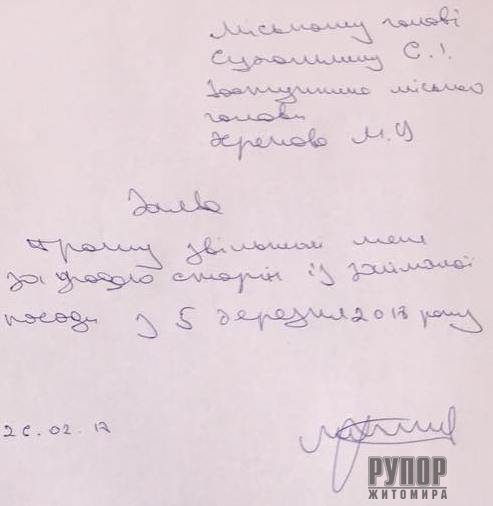 Міському голові
Сухомлину С.І.
Заступника міського
голови
Хренова М.Ю
Заява
Прошу звільнити мене
за угодою сторін із займаної
посади з 5 березня 2018 року
26.02.18
РУПОР
ЖИТОМИРА